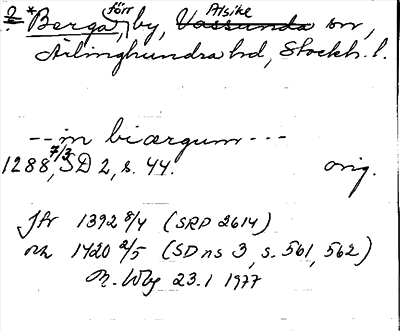 förr Alsike
? *Berga, by, Vassunda sn,
Ärlinghundra hd, Stockh. l.
--- in biærgum ---
1288 7/3, SD 2, s. 44. orig.
Jfr 1392 8/4 (SRP 2614)
och 1420 2/5 (SD ns 3, s. 561, 562)
M. Wbg 23.1 1977